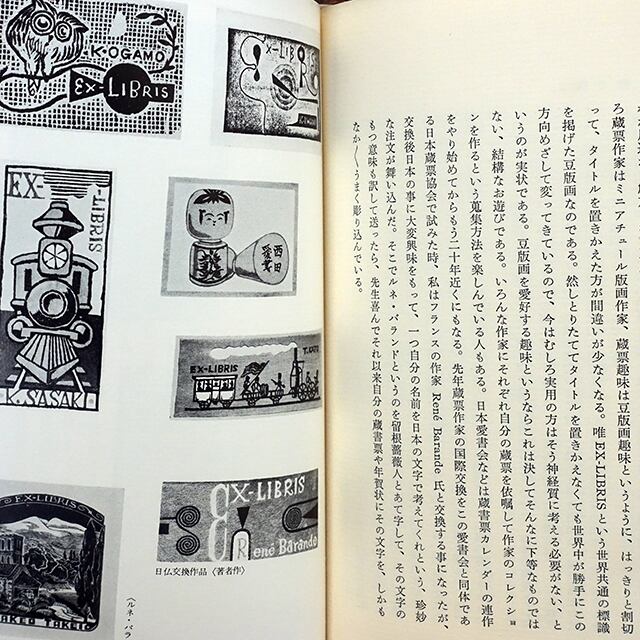 K・OGAMO
EX-LIBRIS
EX-LIBRIS
EX-
LIBRIS
K. SASAKI
西田
愛書
EX-LIBRIS
EX-LIBRIS
René Barande
日仏交換作品〈著者作〉
EX-LIBRIS
〈ルネ・バラ
ろ蔵票作家はミニアチュール版画作家、蔵票趣味は豆版画趣味というように、はっきりと割切
って、タイトルを置きかえた方が間違いが少なくなる。唯 EX-LIBRIS という世界共通の標識
を掲げた豆版画なのである。然しとりたててタイトルを置きかえなくても世界中が勝手にこの
方向めざして変ってきているので、今はむしろ実用の方はそう神経質に考える必要がない、と
いうのが実状である。豆版画を愛好する趣味というならこれは決してそんなに下等なものでは
ない、結構なお遊びである。いろんな作家にそれぞれ自分の蔵票を依嘱して作家のコレクショ
ンを作るという蒐集方法を楽しんでいる人もある。日本愛書会などは蔵書票カレンダーの連作
をやり始めてからもう二十年近くにもなる。先年蔵票作家の国際交換をこの愛書会と同体であ
る日本蔵票協会で試みた時、私はフランスの作家 René Barando 氏と交換する事になったが、
交換後日本の事に大変興味をもって、一つ自分の名前を日本の文字で考えてくれという、珍妙
な注文が舞い込んだ。そこでルネ・バランドというのを留根薔薇人とあて字して、その文字の
もつ意味も訳して送ったら、先生喜んでそれ以来自分の蔵書票や年賀状にその文字を、しかも
なか〱うまく彫り込んでいる。